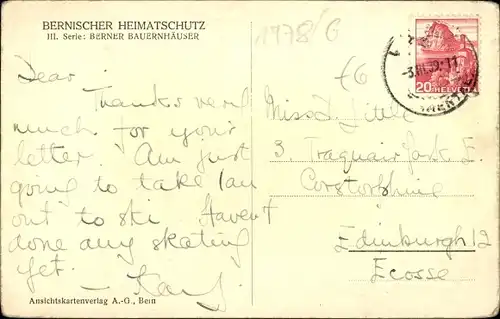 BERNISCHER HEIMATSCHUTZ
III. Serie: BERNER BAUERNHÄUSER
1978/G
Dear
Thanks very
much for your
letter. Am just
going to take Ian
out to ski Haven't
done any skating
yet.
Ansichtskartenverlag A.-G., Bern
20 HELVETIA
-3.III.39.-11
Miss J. Little
3. Traquair Park E.
Corstorphine
Edinburgh 12
Ecosse